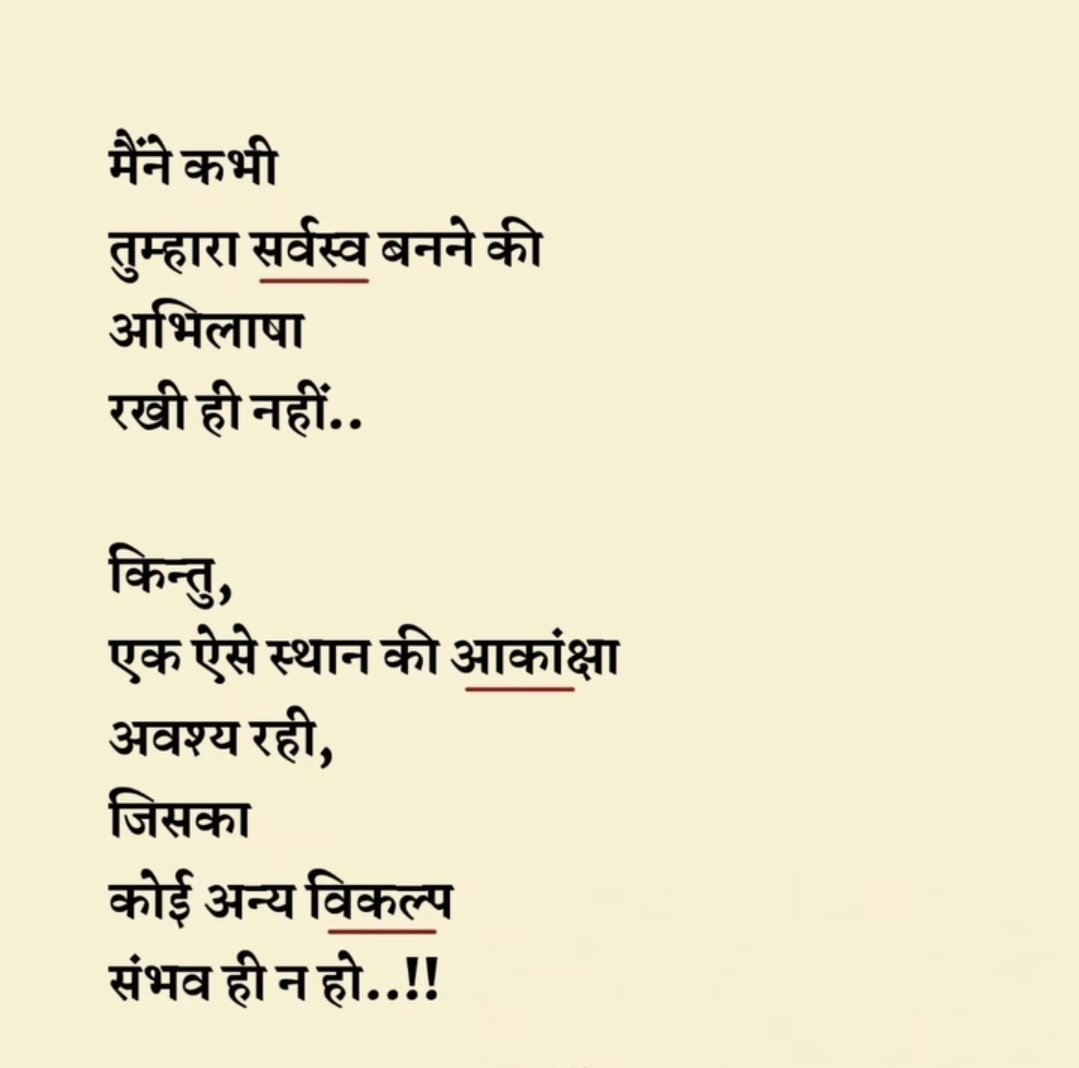 मैंने कभी
तुम्हारा सर्वस्व बनने की
अभिलाषा
रखी ही नहीं..
किन्तु,
एक ऐसे स्थान की आकांक्षा
अवश्य रही,
जिसका
कोई अन्य विकल्प
संभव ही न हो..!!